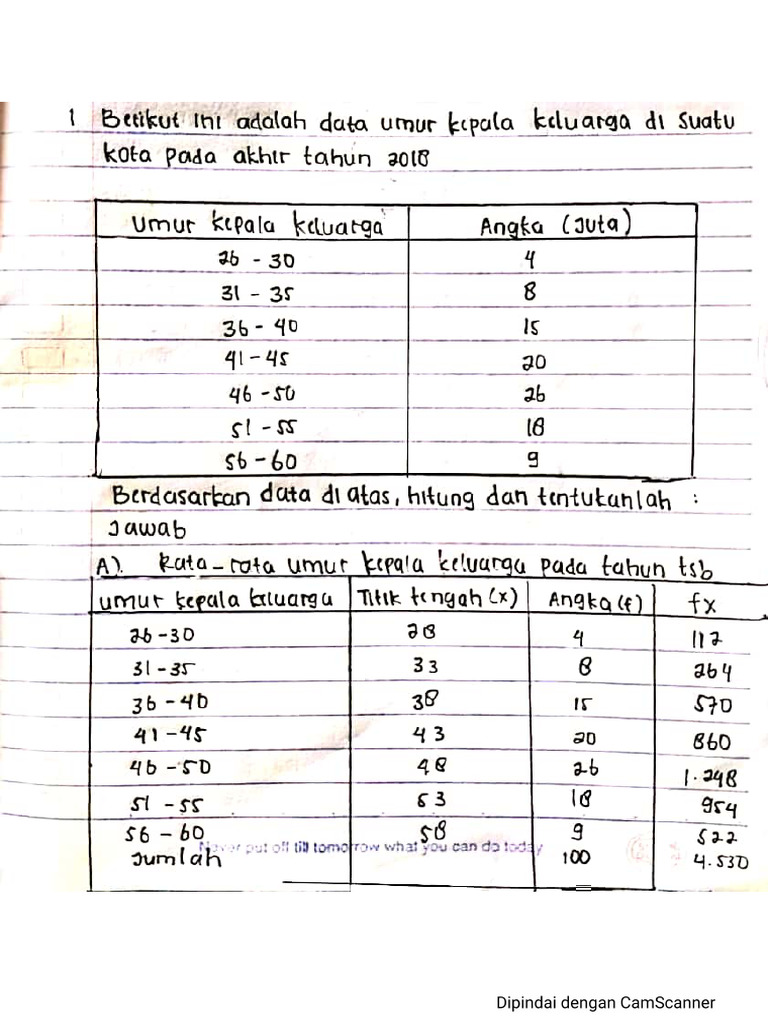 1 Berikut ini adalah data umur kepala keluarga di suatu
kota pada akhir tahun 2018
umur kepala keluarga Angka (Juta)
26 - 30 4
31 - 35 8
36 - 40 15
41 - 45 20
46 - 50 26
51 - 55 18
56 - 60 9
Berdasarkan data di atas, hitung dan tentukanlah :
Jawab
A). Rata - rata umur kepala keluarga pada tahun tsb
umur kepala keluarga Titik tengah (x) Angka (f) fx
26 - 30 28 4 112
31 - 35 33 8 264
36 - 40 38 15 570
41 - 45 43 20 860
46 - 50 48 26 1.248
51 - 55 53 18 954
56 - 60 58 9 522
Never put off till tomorrow what you can do today
Jumlah 100 4.530
Dipindai dengan CamScanner